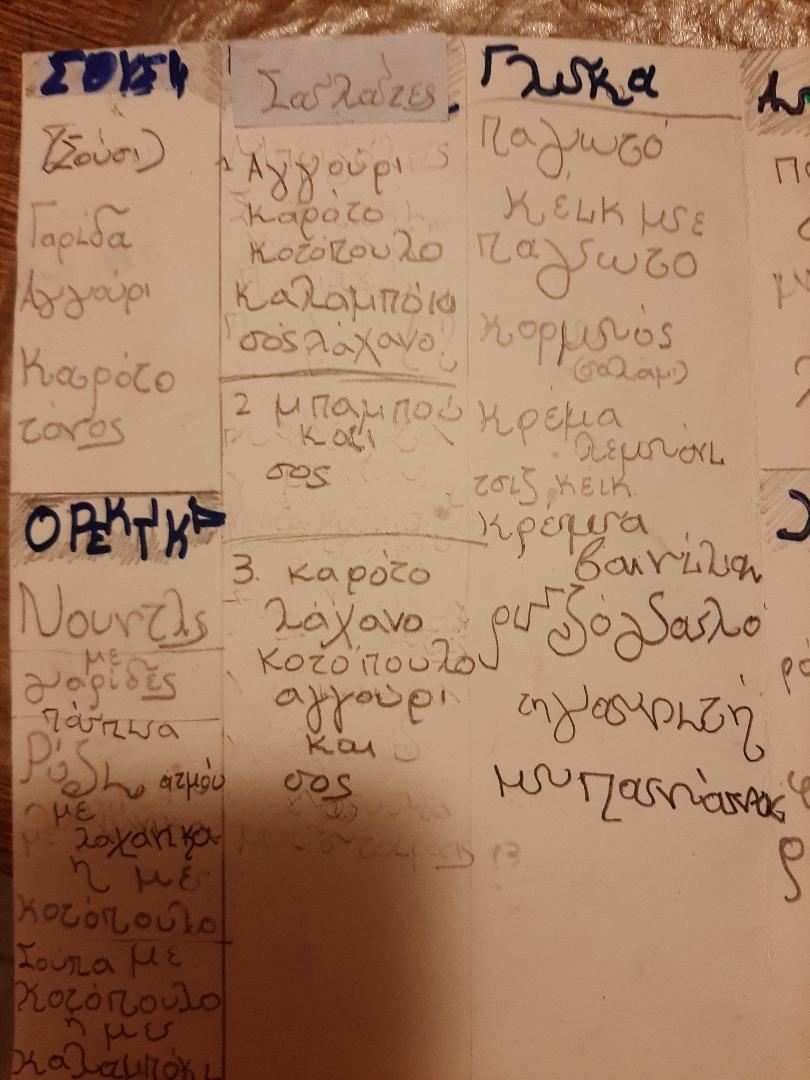 (Σούσι)
Γαρίδα
Αγγούρι
Καρότο
τόνος
ΟΡΕΚΤΙΚΑ
Νουντλς
με
γαρίδες
πάπια
Ρύζι ατμόυ
με
λαχανικα
η με
κοτόπουλο
Σουπα με
κοτόπουλο
η με
καλαμπόκι
Σαλάτες
1 Αγγούρι
καρότο
κοτόπουλο
καλαμπόκι
σός λάχανο
2 μπαμπού
και
σος
3. καρότο
λάχανο
κοτόπουλο
αγγούρι
και
σος
Γλυκα
παγωτό
κέικ με
παγωτο
κορμός
(σαλάμι)
κρέμα
λεμόνι
τσιζ κεικ
κρέμα
βανίλια
ρυζόγαλο
τηγανιτή
μπανάνα